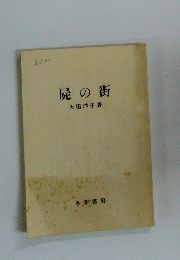 屍の街
大田洋子著
冬芽書房